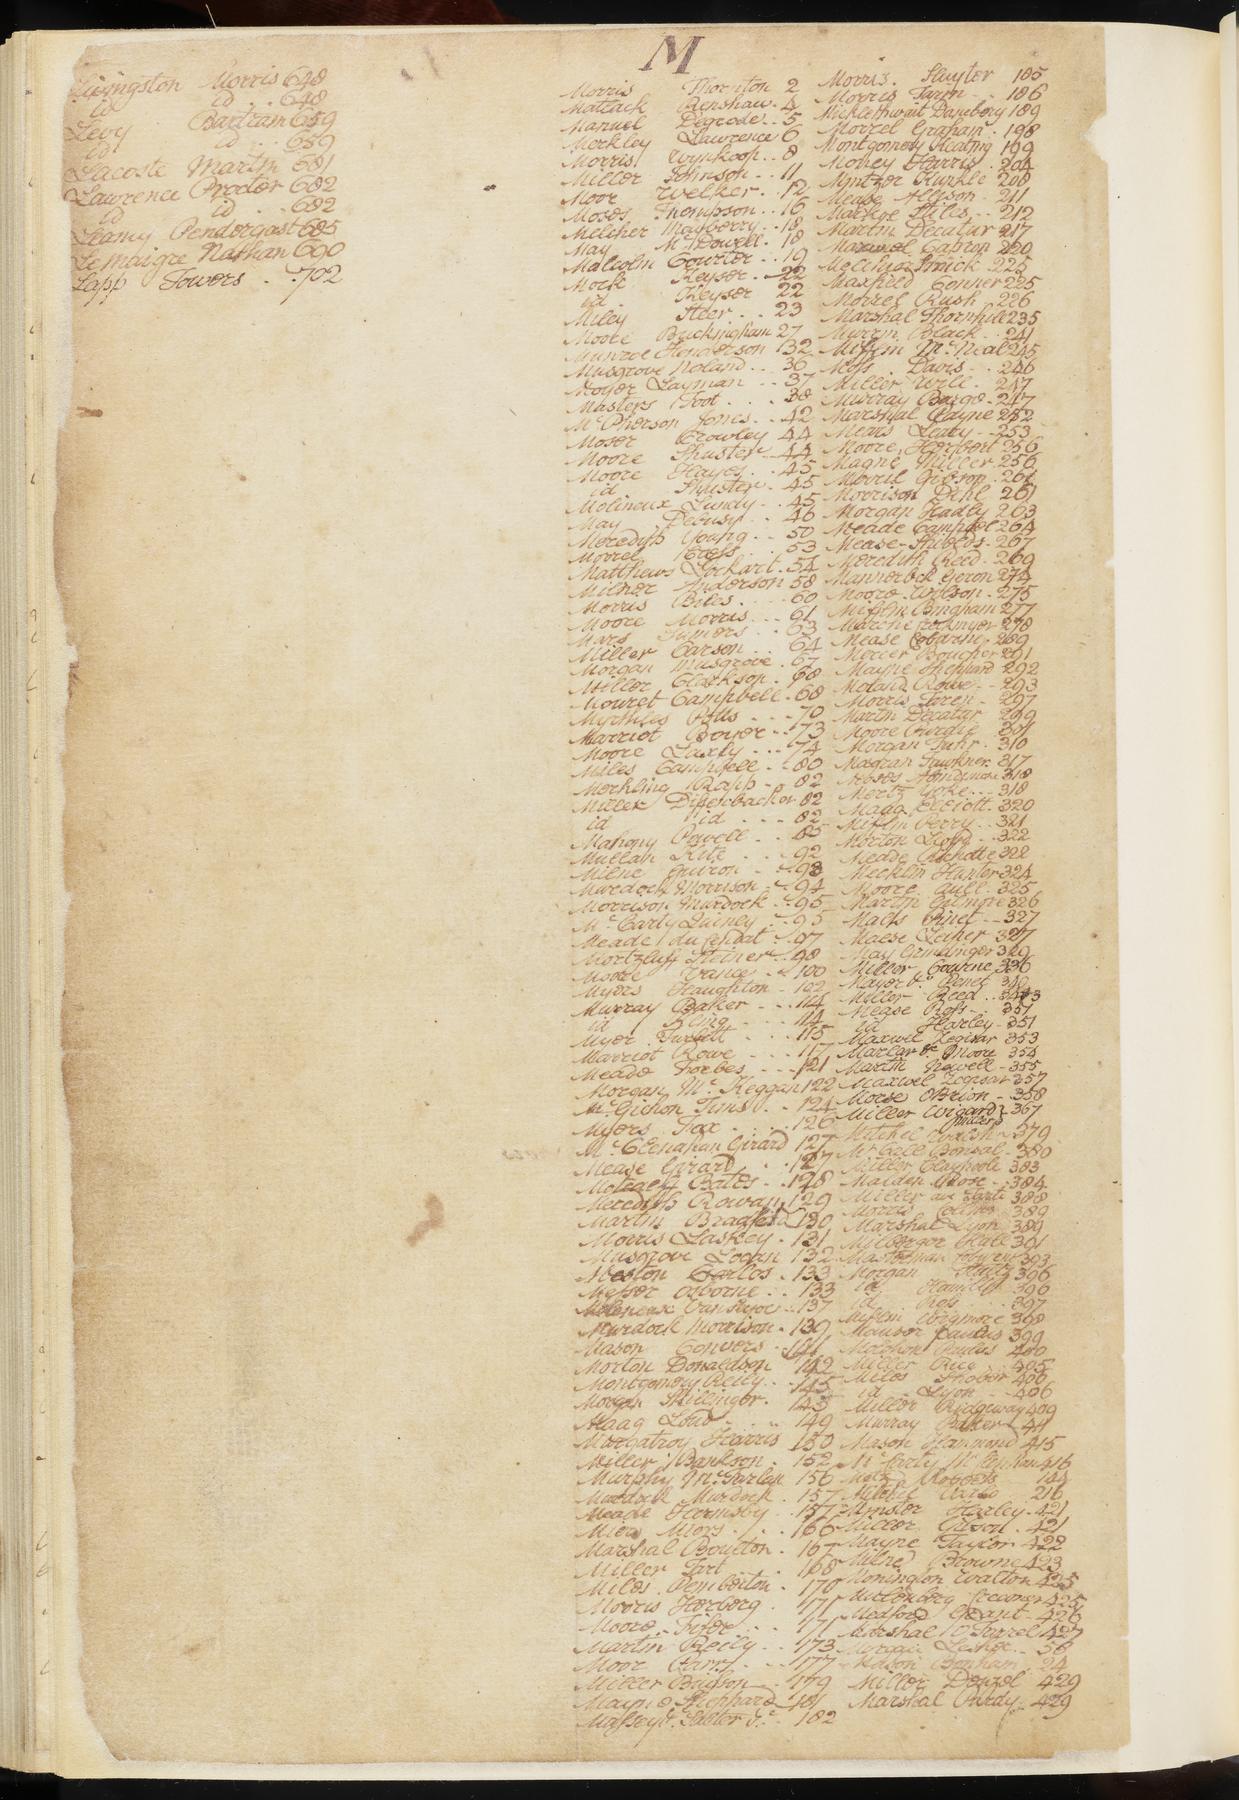 Livingston Morris 648
id id 648
Levy Bartram 659
id id 659
Lacoste Martin 681
Lawrence Procter 682
id id 682
Leamy Pendergast 685
Lemaigre Nathan 690
Lapp Towers 702
M
Morris Thornton 2
Matlack Renshaw 4
Manuel Degrode 5
Merkley Lawrence 6
Morris Wynkoop 8
Miller Johnson 11
Moor Welker 12
Moses Thompson 16
Melcher Mayberry 18
May McDowell 18
Malcolm Courter 19
Mock Keyser 22
id Keyser 22
Miley Steer 23
Moore Buckingham 27
Munroe Henderson 32
Musgrove Noland 36
Moyer Layman 37
Masters Foot 38
McPherson Jones 42
Moser Crowley 44
Moore Shuster 44
Moore Hayes 45
id Shuster 45
Molineux Lundy 45
May Debusy 46
Meredith Young 50
Morrel Kress 53
Matthews Lockart 54
Milner Anderson 58
Morris Biles 60
Moore Morris 61
Mars Sumers 63
Miller Carson 64
Morgan Musgrove 67
Miller Clarkson 68
Mouret Campbell 68
Myrthles Potts 70
Marriot Boyer 73
Moore Laxly 74
Miles Campbell 80
Merkling Rapp 82
Miller Diffenbacher 82
id id 82
Mahony Powell 85
Mullan Kite 92
Milne Guiron 93
Murdock Morrison 94
Morrison Murdock 95
McCarty Quiney 95
Meade 97
Mortzluff Steiner 98
Moore Vance 100
Myers Haughton 102
Murray Baker 114
id King 114
Myer Turbett 115
Marriot Rowe 117
Meade Forbes 121
Morgan McKeggan 122
McGichon Tims 124
Myers Fox 126
McClenahan Girard 127
Mease Girard 127
Metcalff Bates 128
Meredith Rowan 129
Martin Bradford 130
Morris Laskey 131
Musgrove Logan 132
Weston Carlos 133
Messer Osborne 133
Molineux 137
Murdock Morrison 139
Mason Conners 141
Morton Donaldson 142
Montgomery Reily 145
Morgan Skillinger 145
Maag Loud 149
Murgatroy Harris 150
Miller Bankson 152
Murphy McFarlen 156
Murdock Murdock 157
Meade Hormsby 157
Miers Miers 166
Marshal Bourton 167
Miller Tart 168
Miles Pemberton 170
Morris Herberg 171
Moore Fifer 171
Martin Reily 173
Moor Parry 177
Miller Bryson 179
Mayne Sheppard 181
Massey & Salter &c 182
Morris Sluyter 185
Morris Taron 186
Micklethwait Dansbery 189
Morrel Graham 198
Montgomery Keating 199
Money Harris 204
Mintzer Kunkle 208
Mease Allison 211
Markre Stiles 212
Martin Decatur 217
Maxwel Gabron 220
Melchor Smick 225
Maxfield Conner 225
Morrel Rush 226
Marshal Thornhill 235
Murrin Black 241
Mifflin McNeal 245
Moss Davis 246
Miller Will 247
Murray Barge 247
Marshal Payne 252
Mears Leary 253
Moore Herbert 256
Magne Miller 256
Morril Gibson 261
Morrison Dihl 261
Morgan Hadly 263
Meade Campbel 264
Mease Shields 267
Meredith Reed 269
Mannerback Geron 274
Moore Wilson 275
Mifflin Bingham 277
Marche 278
Mease 289
Mercer Boucher 291
Mayne Sheppard 292
Moland Rowe 293
Morris Toren 297
Martin Decatur 299
Moore Purdie 301
Morgan Fuhr 310
Magran Faulkner 317
Moses 318
Mertz Yoke 318
Maag Elliott 320
Mifflin Perry 321
Morton Lloyd 322
Meade 322
Mecklin Hunter 324
Moore Gull 325
Martin Gilmore 326
Macks Pinet 327
Maese Leiher 327
May Grindinger 329
Miller Gourne 336
Mayer & Penet 340
Miller Reed 343
Mease Ross 351
id Harley 351
Maxwel Legirar 353
Marlar & Moore 354
Martin Newell 355
Maxwel Legirar 357
Morse OBrion 358
Miller Wigard 367
Miller
Mitchel Walsh 379
McCall Bonsal 380
Miller Claypoole 383
Maiden Rose 384
Miller 388
Morris Collins 389
Marshal Lyon 389
Milberger Hall 391
Masterman 393
Morgan Stultz 396
id Hamilt 396
id Ross 397
Mifflin Wigmore 398
Mouser Paulus 399
Molchon Paulus 400
Miller Rice 405
Miles Snober 406
id Lyon 406
Miller Ridgeway 409
Murray Baker 411
Mason Hammond 415
McCarty 416
Motz Roberts 144
Mitchel 216
Minster Harley 421
Miller Gibson 421
Mayne Taylor 422
Milne Browne 423
Monington Walton 425
Mullenberg Creamer 425
Medford Grant 426
Marshal O Farrel 427
Morgan Lesher 58
Mason Bonham 24
Miller Denzel 429
Marshal Purdy 429